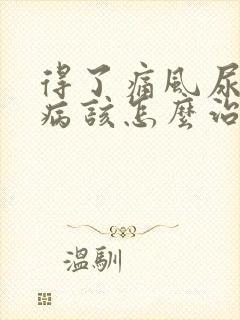 得了痛风尿
病該怎麼治
溫馴